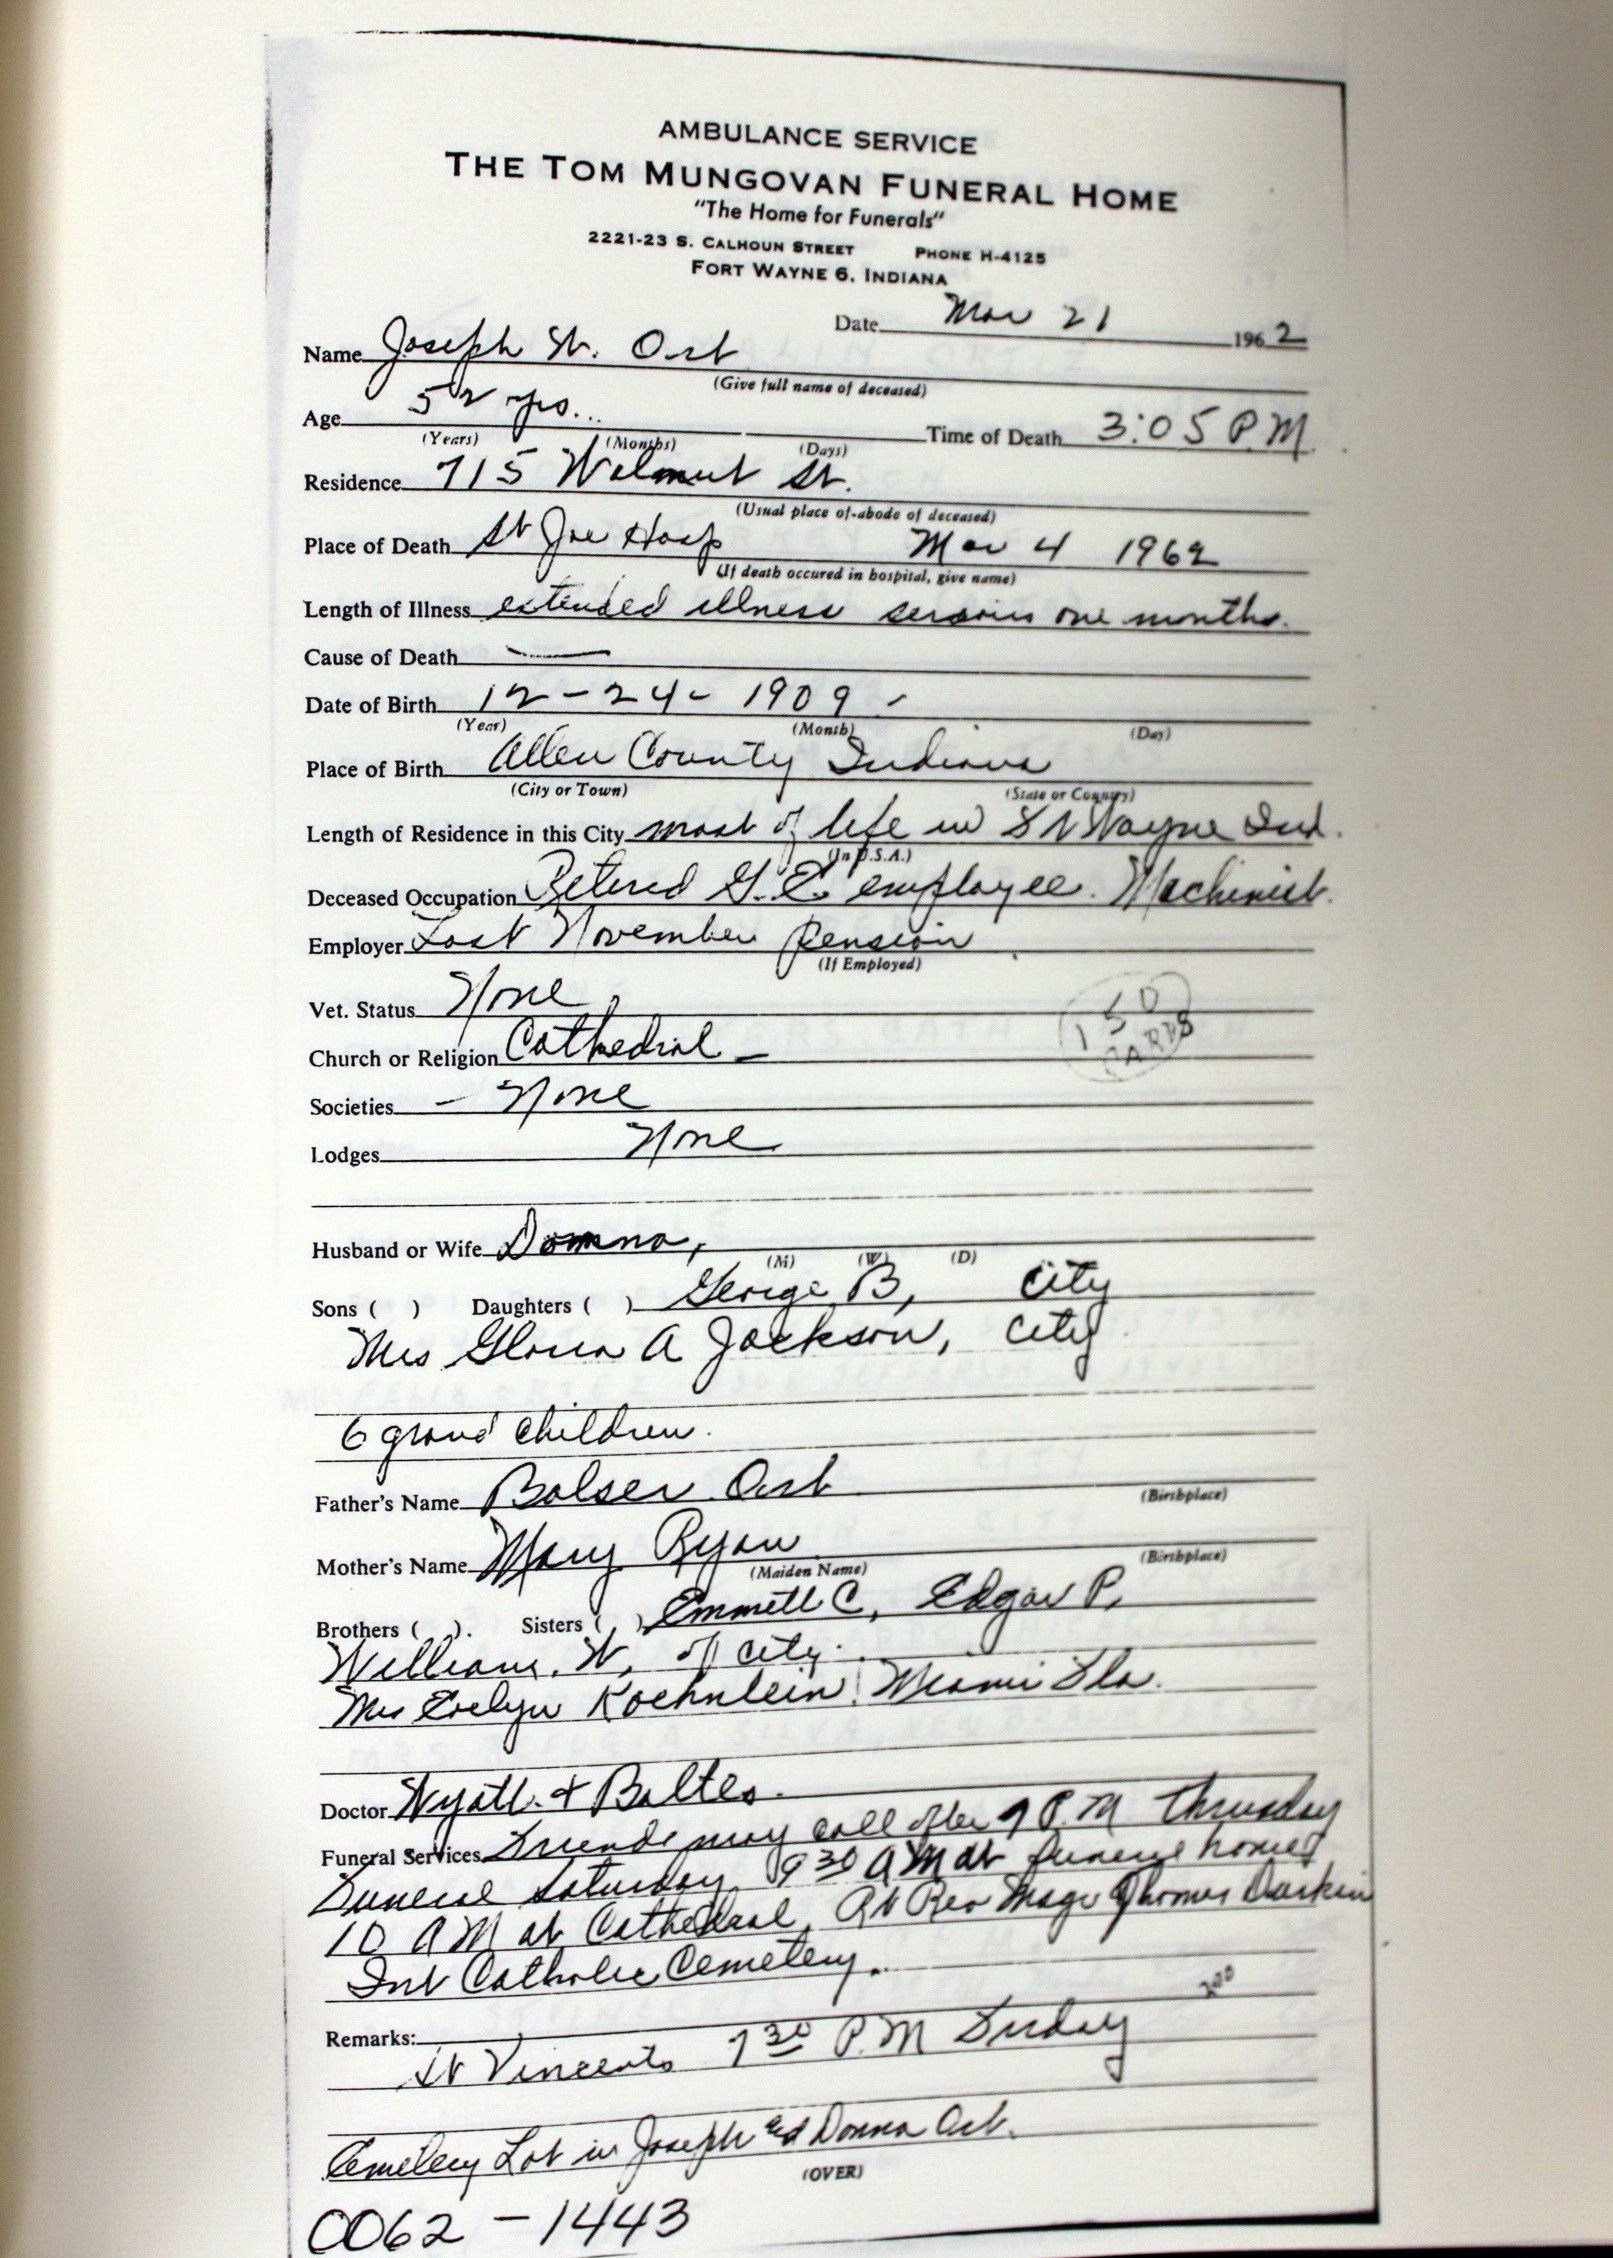 AMBULANCE SERVICE
THE TOM MUNGOVAN FUNERAL HOME
"The Home for Funerals"
2221-23 S. CALHOUN STREET PHONE H-4125
FORT WAYNE 6, INDIANA
Date Mar 21 1962
Name Joseph W. Ost
(Give full name of deceased)
Age 52 yrs...
(Years) (Months) (Days)
Time of Death 3:05 P.M.
Residence 715 Walnut St.
(Usual place of abode of deceased)
Place of Death St Joe Hosp Mar 4 1962
(If death occured in hospital, give name)
Length of Illness extended illness serious one months.
Cause of Death —
Date of Birth 12-24-1909 -
(Year) (Month) (Day)
Place of Birth Allen County Indiana
(City or Town) (State or Country)
Length of Residence in this City most of life in Ft Wayne Ind.
(In U.S.A.)
Deceased Occupation Retired G.E. employee. Machinist.
Employer Last November pension
(If Employed)
Vet. Status None
150
CARDS
Church or Religion Cathedral -
Societies - None
Lodges None
Husband or Wife Donna,
(M) (W) (D)
Sons ( ) Daughters ( ) George B, City
Mrs Gloria A Jackson, City
6 grand children.
Father's Name Balser Ost
(Birthplace)
Mother's Name Mary Ryan
(Maiden Name) (Birthplace)
Brothers ( ). Sisters ( ) Emmett C, Edgar P,
William. W, of city.
Mrs Evelyn Koehnlein, Miami Fla.
Doctor Wyatt. & Baltes.
Funeral Services Friends may call after 7 P.M Thrusday
Funeral Saturday, 9 30 A M at funeral home
10 A M at Cathedral, Rt Rev Msgr Thomas Durkin
Int Catholic Cemetery.
200
Remarks:
St Vincents 7 30 P.M Friday
Cemetery Lot in Joseph and Donna Ost.
(OVER)
0062 - 1443